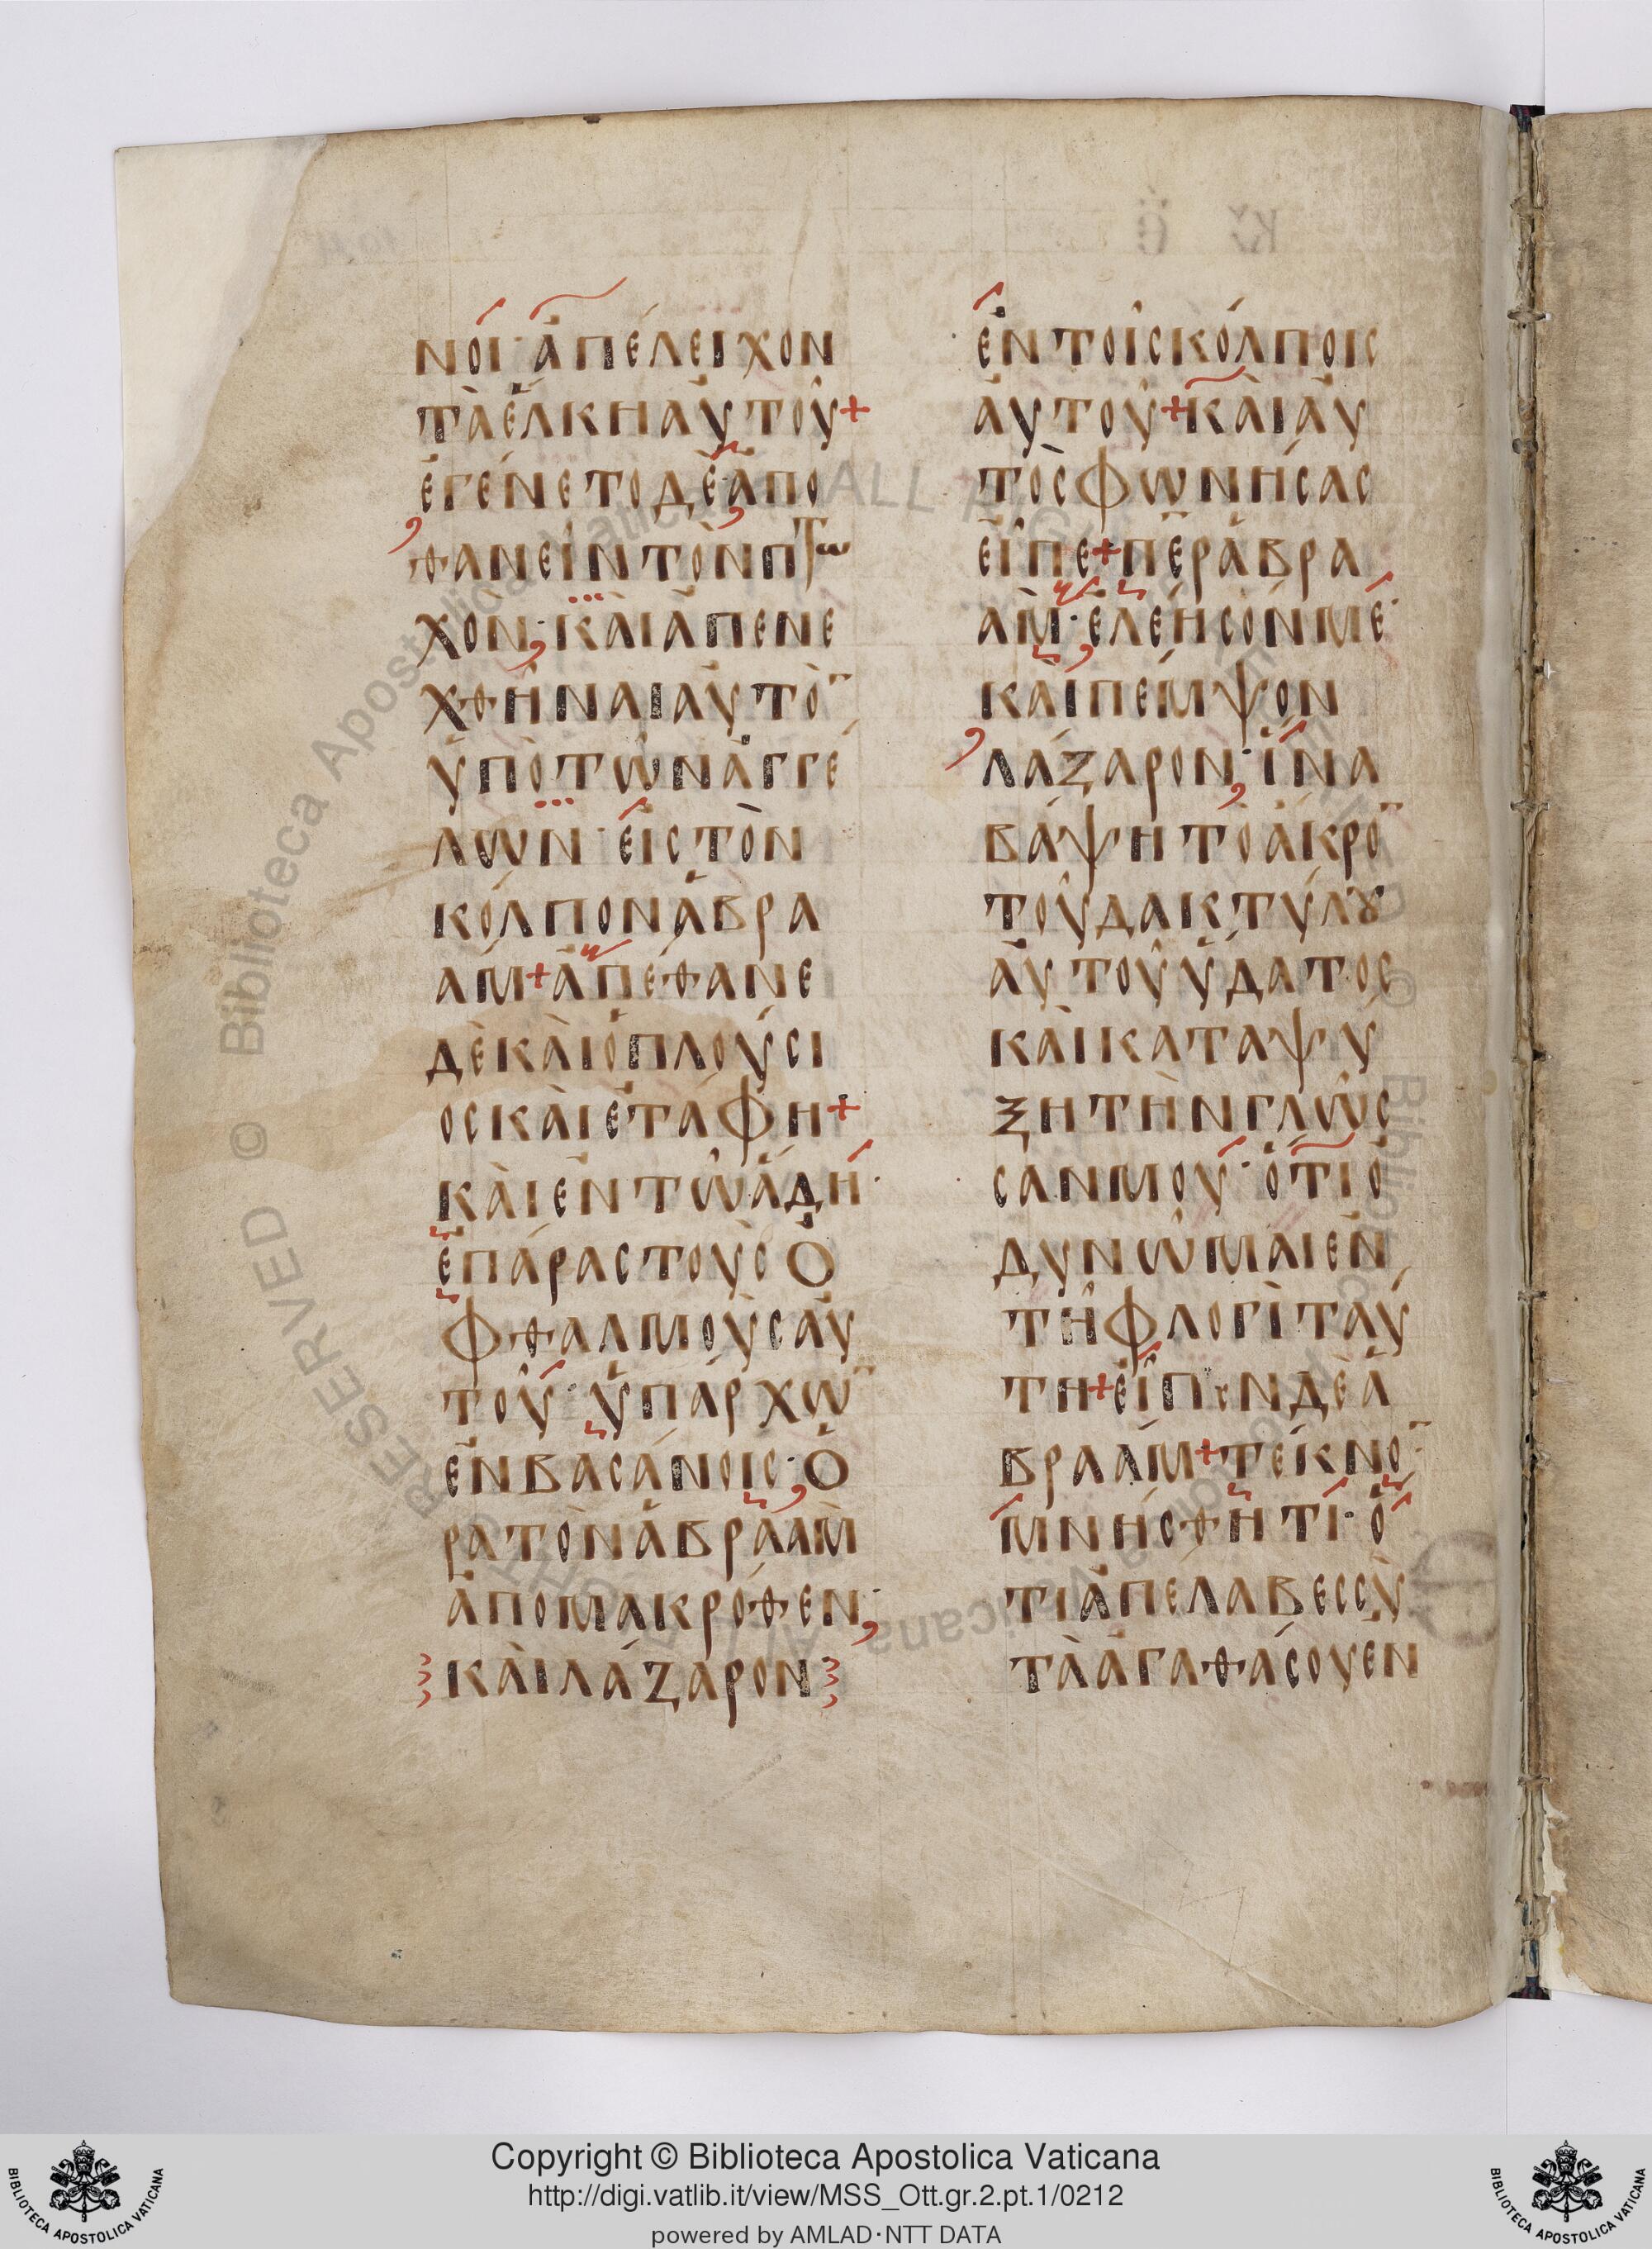 ΝΟΙ· ἈΠΈΛΕΙΧΟΝ
ΤᾺ ἝΛΚΗ ΑΥ̓ΤΟΥ͂+
ἘΓΈΝΕΤΟ ΔῈ ἈΠΟ
ΘΑΝΕΙ͂Ν ΤῸΝ ΠΤΩ
ΧῸΝ· ΚΑῚ ἈΠΕΝΕ
ΧΘΗ͂ΝΑΙ ΑΥ̓ΤῸ¯
ὙΠῸ ΤΩ͂Ν ἈΓΓΈ
ΛΩΝ· ἘΙΣ ΤῸΝ
ΚΌΛΠΟΝ ἈΒΡΑ
ΆΜ+ ἈΠΈΘΑΝΕ
ΔῈ ΚΑῚ Ὁ ΠΛΟΎΣΙ
ΟΣ ΚΑῚ ἘΤΆΦΗ+
ΚΑῚ ἘΝ ΤΩ͂ ἍΔΗ·
ἘΠΆΡΑΣ ΤΟῪΣ Ὀ
ΦΘΑΛΜΟῪΣ ΑΥ̓
ΤΟΥ͂· ὙΠΆΡΧΩ¯
ἘΝ ΒΑΣΆΝΟΙΣ· Ὁ
ΡΑ ΤῸΝ ἈΒΡΑᾺΜ
ἈΠΟ ΜΑΚΡΌΘΕΝ·
ΚΑῚ ΛΆΖΑΡΟΝ
ἘΝ ΤΟΙ͂Σ ΚΌΛΠΟΙΣ
ΑΥ̓ΤΟΥ͂+ ΚΑῚ ΑΥ̓
ΤῸΣ ΦΩΝΉΣΑΣ
ΕἾΠΕ+ ΠΕΡ ἈΒΡΑ
ᾺΜ· ἘΛΈΗΣΌΝ ΜΕ·
ΚΑῚ ΠΈΜΨΟΝ
ΛΆΖΑΡΟΝ· ἽΝΑ
ΒΆΨΗ ΤῸ ἌΚΡΟ¯
ΤΟΥ͂ ΔΑΚΤΎΛȢ
ΑΥ̓ΤΟΥ͂ ὝΔΑΤΟΣ
ΚΑῚ ΚΑΤΑΨΎ
ΞΗ ΤῊΝ ΓΛΩ͂Σ
ΣΑΝ ΜΟΥ· ὍΤΙ Ὀ
ΔΥΝΩ͂ΜΑΙ ἘΝ
ΤΗ͂ ΦΛΟΓῚ ΤΑΎ
ΤΗ+ ΕἾΠΕΝ ΔῈ Ἀ
ΒΡΑΆΜ+ ΤΈΚΝΟ¯
ΜΝΉΣΘΗΤΙ· Ὅ
ΤΙ ἈΠΕΛΑΒΕΣ ΣῪ
ΤᾺ ἈΓΑΘΆ ΣΟΥ ἘΝ
Copyright © Biblioteca Apostolica Vaticana
http://digi.vatlib.it/view/MSS_Ott.gr.2.pt.1/0212
powered by AMLAD·NTT DATA
BIBLIOTECA APOSTOLICA VATICANA
BIBLIOTECA APOSTOLICA VATICANA